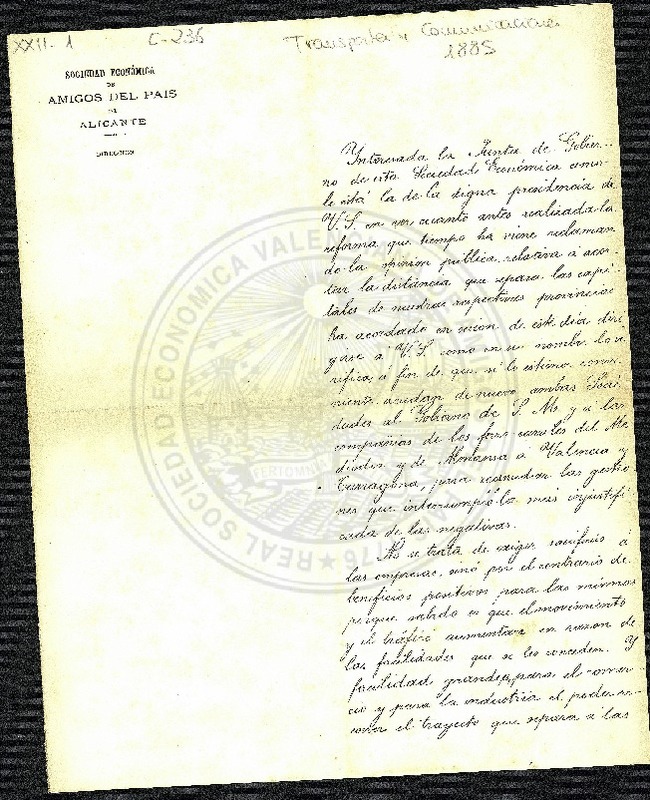 XXII-1 C-236 Transportes y Comunicaciones
1885
SOCIEDAD ECONÓMICA
DE
AMIGOS DEL PAIS
DE
ALICANTE
Interesada la Junta de Gobier-
no de esta Sociedad Económica como
le está la de la digna presidencia de
V. S. en ver cuanto antes realizada la
reforma que tiempo ha viene reclaman
do la opinion pública relativa á acor
tar la distáncia que separa las capi-
tales de nuestras respectivas provincias
ha acordado en sesion de este dia diri
girse á V. S. como en su nombre lo ve
rifica, á fin de que, si lo estima conve
niente acudan de nuevo ambas Socie
dades al Gobierno de S. M. y a las
compañias de los ferro-carriles del Me
diodia y de Almansa á Valencia y
Tarragona, para reanudar las gestio
nes que interrumpió la mas injustifi
cada de las negativas.
No se trata de exigir sacrificios á
las empresas, sinó por el contrario de
beneficios positivos para las mismas
porque sabido es que el movimiento
y el tráfico aumentan en razon de
las facilidades que se les conceden. Y
facilidad grande es para el comer
cio y para la industria el poder re-
correr el trayecto que separa a las
REAL SOCIEDAD ECONOMICA VALENCIANA
1776